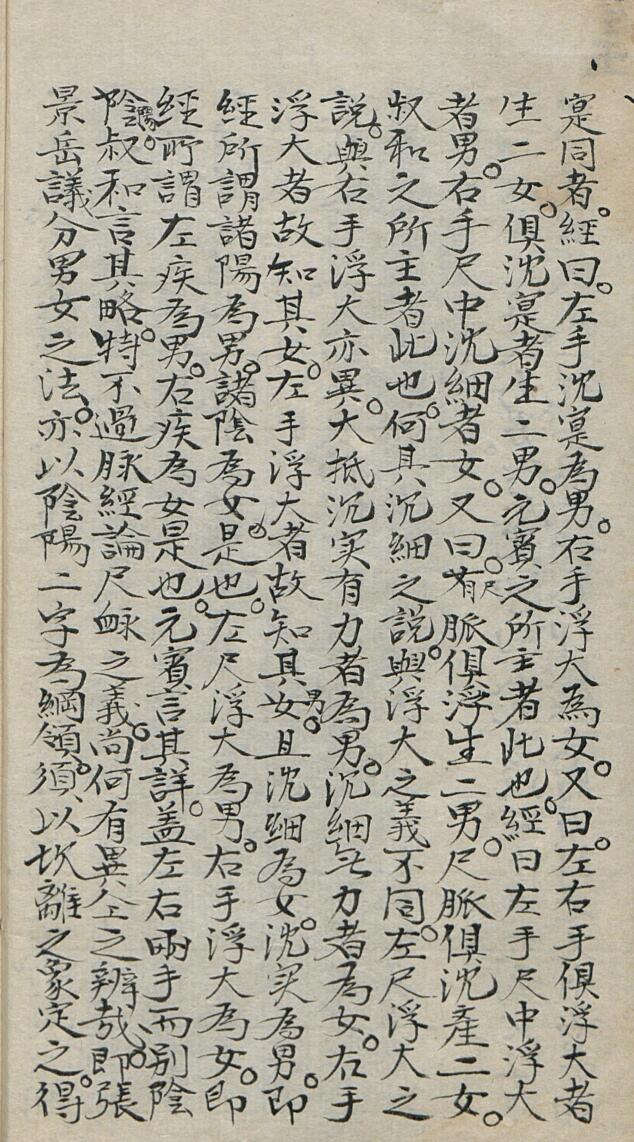 寔同者。經曰。左手沈寔為男。右手浮大為女。又曰。左右手俱浮大者
生二女。俱沈寔者生二男。元賓之所主者此也。經曰左手尺中浮大
者男。右手尺中沈細者女。又曰。尺脈俱浮生二男。尺脈俱沈產二女。
叔和之所主者此也。何其沉細之說。與浮大之義不同。左尺浮大之
說。與右手浮大亦異。大抵沉实有力者為男。沉細无力者為女。右手
浮大者故知其女。左手浮大者故知其男。且沈細為女。沈实為男。即
經所謂諸陽為男。諸陰為女。是也。左尺浮大為男。右手浮大為女。即
經所謂左疾為男。右疾為女是也。元賓言其詳。盖左右兩手而別陰
陽。叔和言其略。特不過脉經論尺䘑之義。尚何有異仝之辨哉。即張
景岳議分男女之法。亦以陰陽二字為綱領。須以坎離之象定之。得